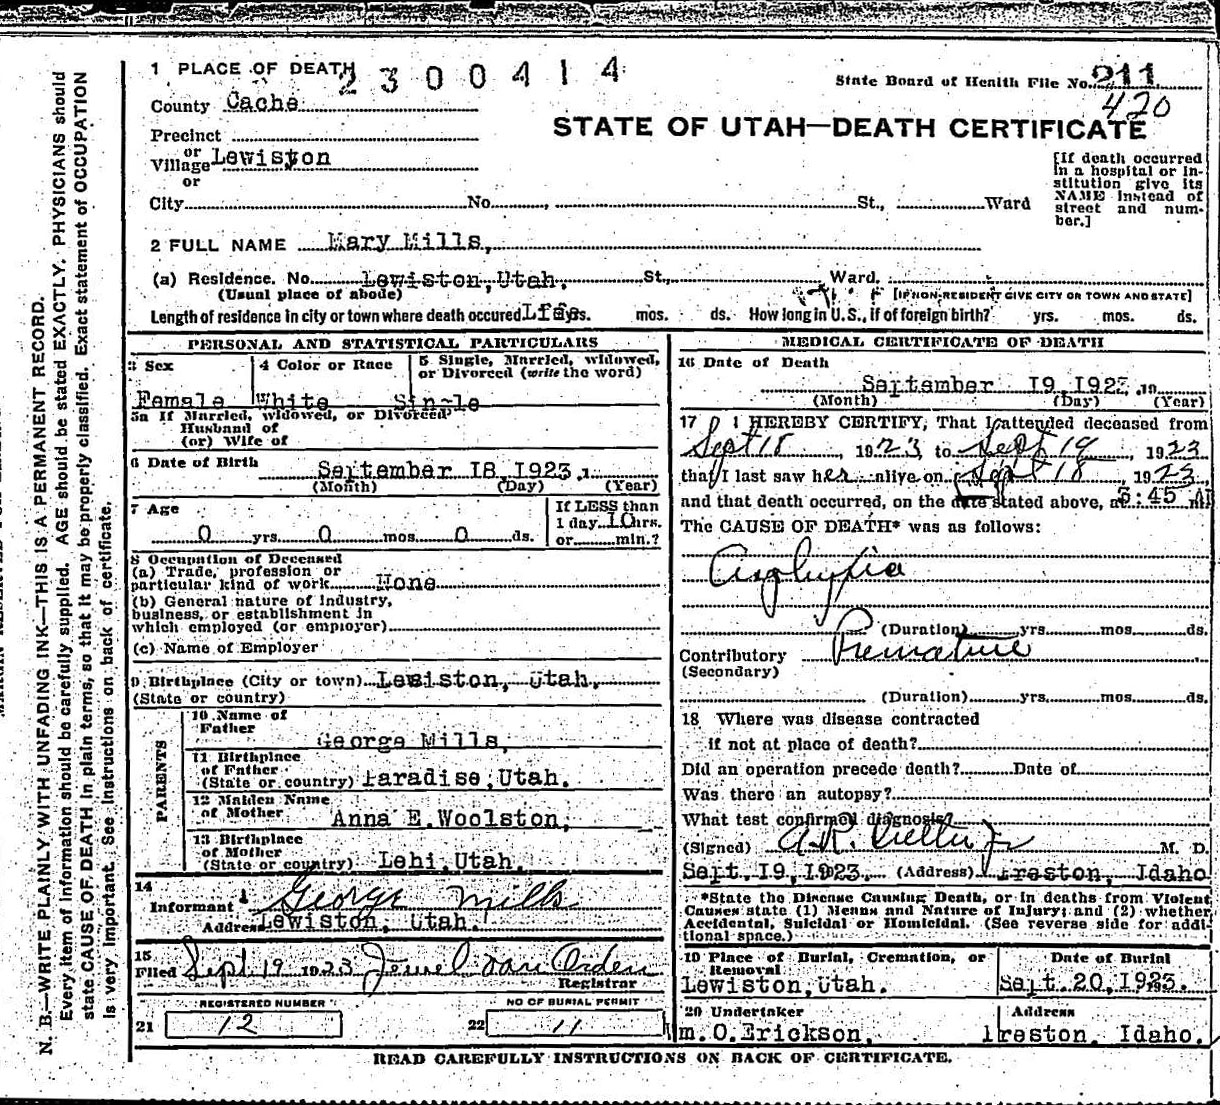 1 PLACE OF DEATH
2300414
State Board of Health File No. 211
420
County Cache
Precinct
or
Village Lewiston
or
STATE OF UTAH—DEATH CERTIFICATE
[If death occurred in a hospital or institution give its NAME instead of street and number.]
City No. , St., Ward
2 FULL NAME Mary Mills,
(a) Residence. No. Lewiston, Utah. St., Ward.
(Usual place of abode) [IF NON-RESIDENT GIVE CITY OR TOWN AND STATE]
Length of residence in city or town where death occured yrs. mos. ds. How long in U.S., if of foreign birth? yrs. mos. ds.
PERSONAL AND STATISTICAL PARTICULARS
3 Sex 4 Color or Race 5 Single, Married, widowed, or Divorced (write the word)
Female White Single
5a If Married, widowed, or Divorced
Husband of
(or) Wife of
6 Date of Birth September 18, 1923.
(Month) (Day) (Year)
7 Age If LESS than
1 day 10 hrs.
0 yrs. 0 mos. 0 ds. or min.?
8 Occupation of Deceased
(a) Trade, profession or
particular kind of work None
(b) General nature of Industry,
business, or establishment in
which employed (or employer)
(c) Name of Employer
9 Birthplace (City or town) Lewiston, Utah.
(State or country)
PARENTS
10 Name of
Father George Mills,
11 Birthplace
of Father
(State or country) Paradise, Utah.
12 Maiden Name
of Mother Anna E. Woolston,
13 Birthplace
of Mother
(State or country) Lehi, Utah.
14
Informant George Mills
Address Lewiston, Utah.
15
Filed Sept 19 1923 Jewel Van Orden
Registrar
REGISTERED NUMBER NO OF BURIAL PERMIT
21 12 22 11
MEDICAL CERTIFICATE OF DEATH
16 Date of Death
September 19, 1923, 19
(Month) (Day) (Year)
17 I HEREBY CERTIFY, That I attended deceased from
Sept 18, 1923 to Sept 19, 1923
that I last saw her alive on Sept 18, 1923
and that death occurred, on the date stated above, at 3:45 A m
The CAUSE OF DEATH* was as follows:
Asphyxia
(Duration) yrs. mos. ds.
Contributory Premature
(Secondary)
(Duration) yrs. mos. ds.
18 Where was disease contracted
if not at place of death?
Did an operation precede death? Date of
Was there an autopsy?
What test confirmed diagnosis?
(Signed) A.R. Jr M. D.
Sept. 19, 1923. (Address) Preston, Idaho
*State the Disease Causing Death, or in deaths from Violent
Causes state (1) Means and Nature of Injury; and (2) whether
Accidental, Suicidal or Homicidal. (See reverse side for addi-
tional space.)
19 Place of Burial, Cremation, or Removal Date of Burial
Lewiston, Utah. Sept. 20, 1923.
20 Undertaker Address
m. O. Erickson, Preston, Idaho.
READ CAREFULLY INSTRUCTIONS ON BACK OF CERTIFICATE.
N. B.—WRITE PLAINLY WITH UNFADING INK—THIS IS A PERMANENT RECORD.
Every item of information should be carefully supplied. AGE should be stated EXACTLY. PHYSICIANS should
state CAUSE OF DEATH in plain terms, so that it may be properly classified. Exact statement of OCCUPATION
is very important. See instructions on back of certificate.